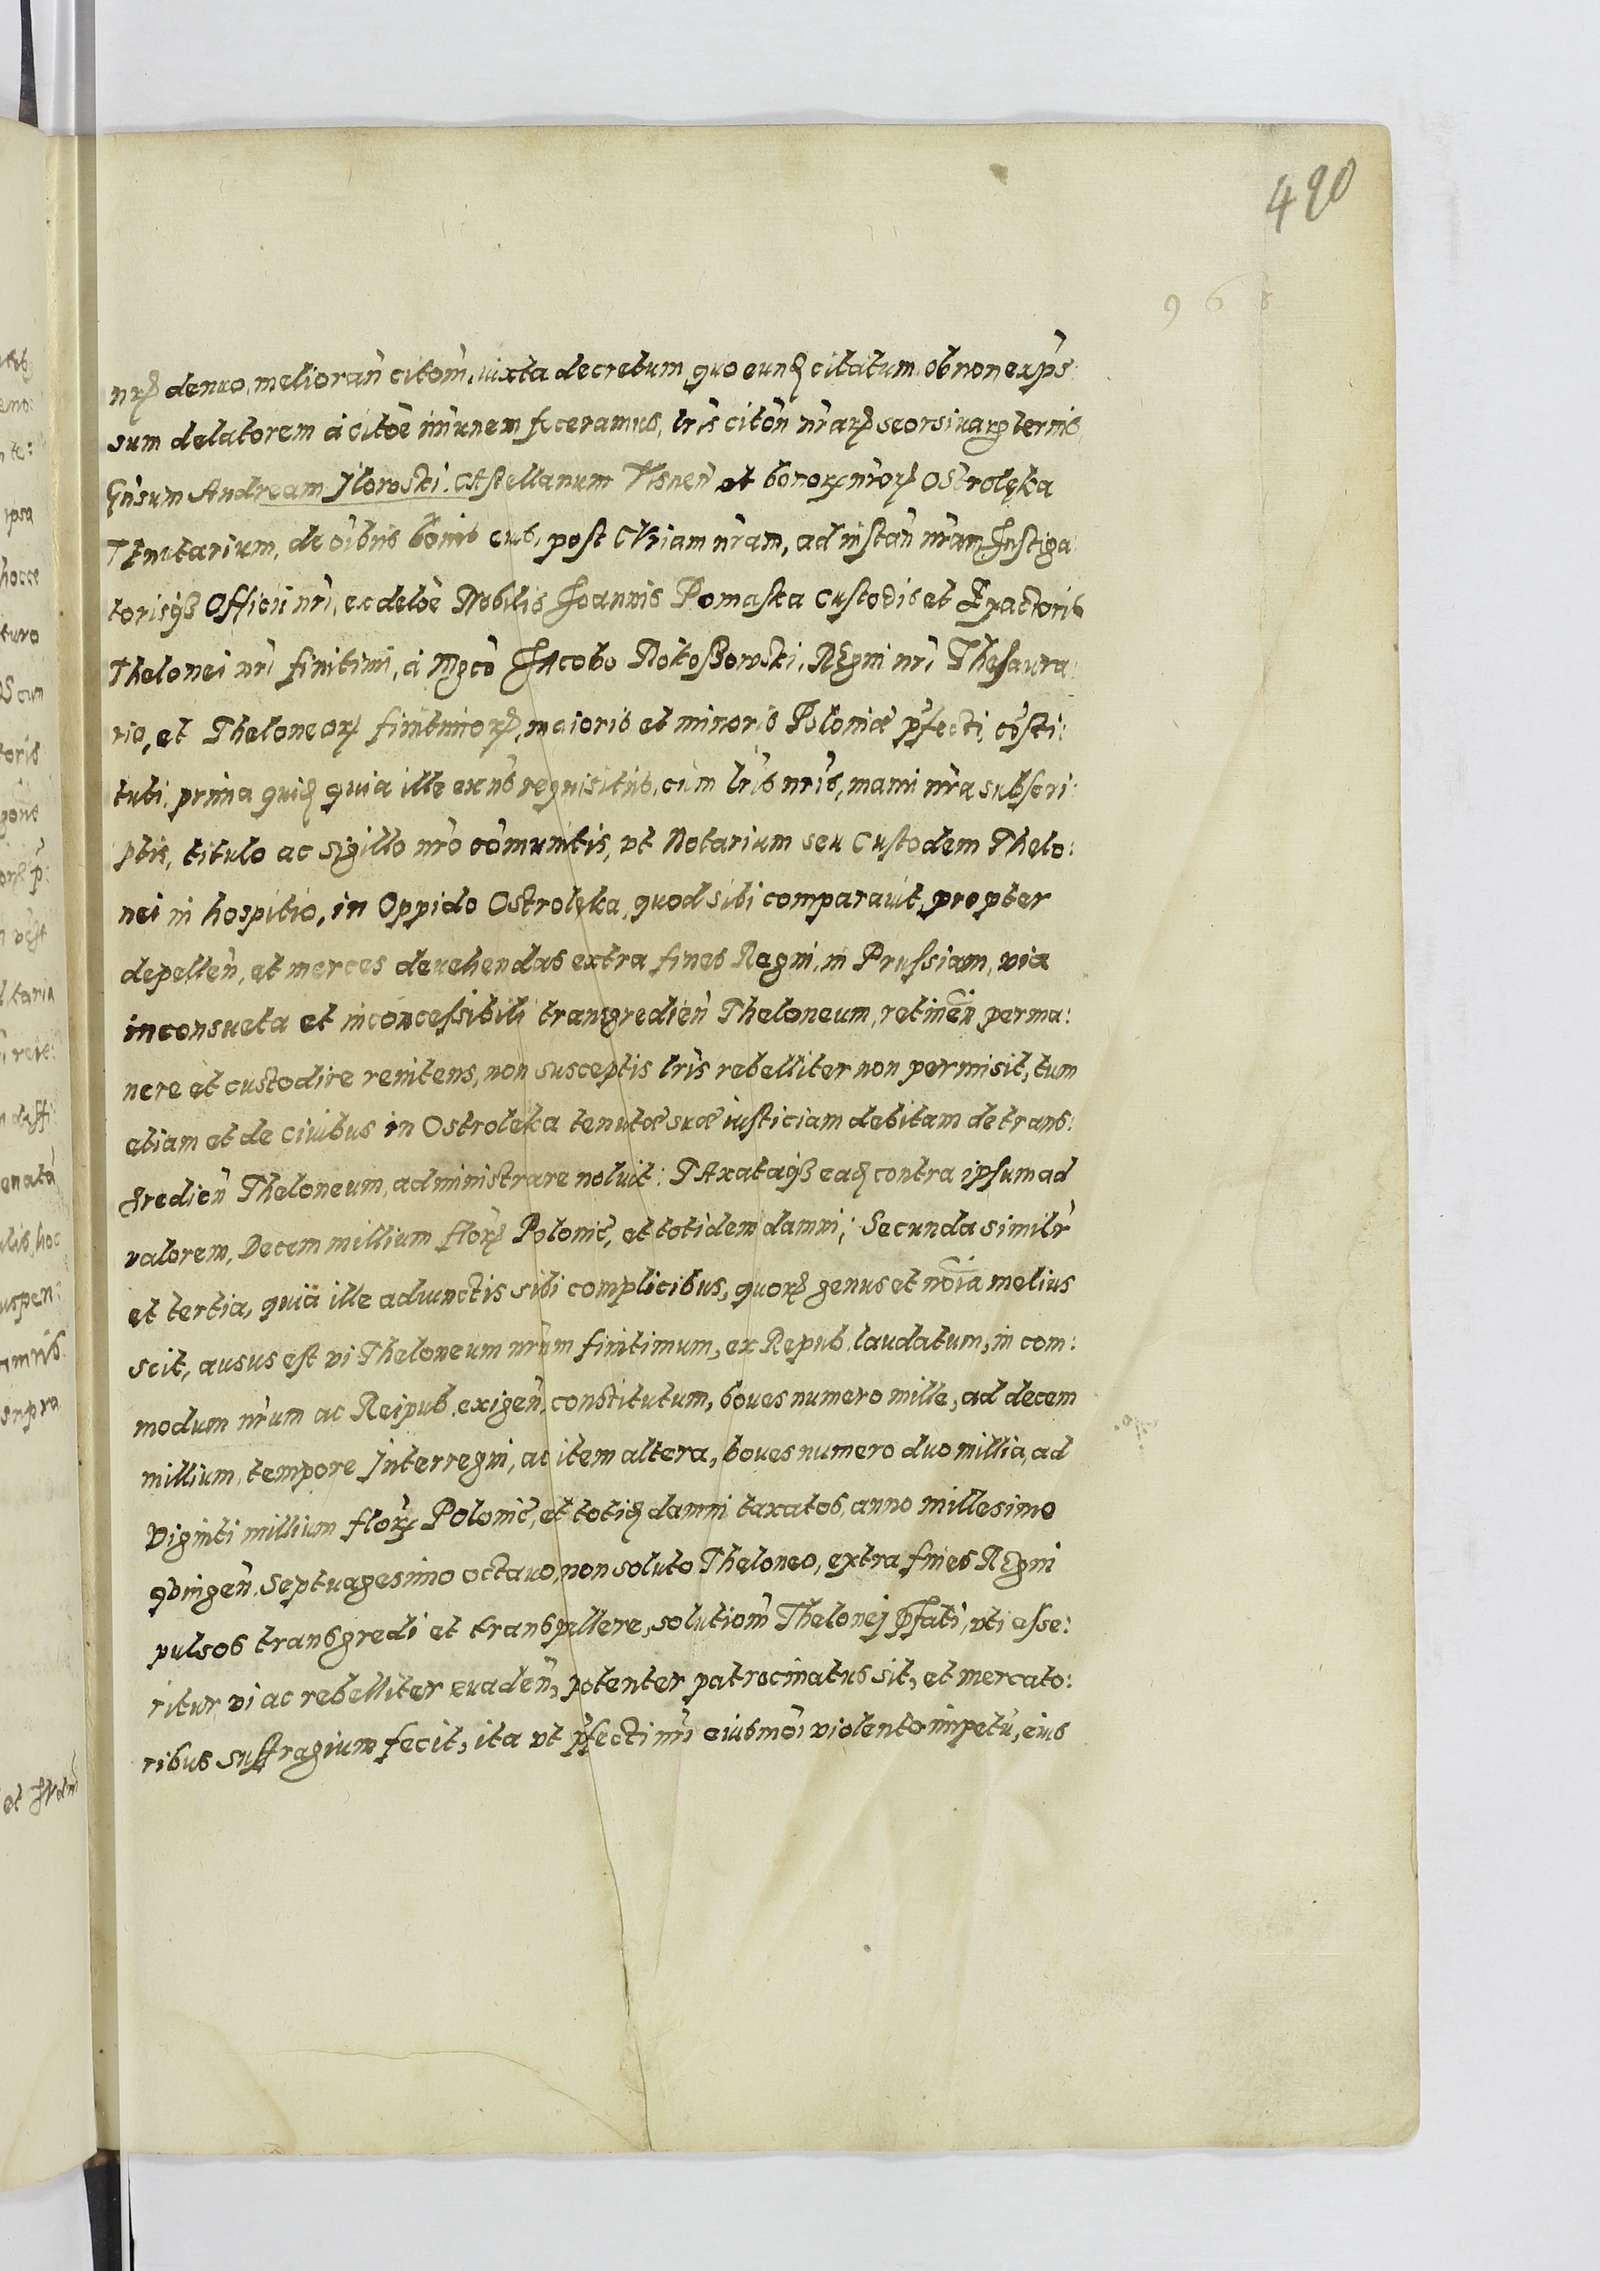 490
968
nrꝝ denuo, melioran̄ citom̄, iuxta decretum quo eund citatum ob non expres
sum delatorem à citōe im̄unem feceramus, lr̄is citōn nr̄arꝝ seorsivarꝫ ternis,
Gn̄sum Andream Jłoroski Castellanum Visneń et bonorꝝ nr̄orꝝ Ostrolęka
Tenutarium, de oībus bonis eius, post CVriam nr̄am, ad instān nr̄am Instiga
torisqꝫ Officii nr̄i, ex delōe Nobilis Joannis Pomaska Custodis et Exactoris
Thelonei nr̄i finitimi, à Mgco Jacobo Rokoßowski, REgni nr̄i Thesaura
rio, et Theloneorꝝ finitimorꝝ, maioris et minoris Poloniæ p̄fecti, cōsti:
tuti, prima quid quia ille exn̄s requisitus, cum lr̄is nr̄is, manu nr̄a subscri:
ptis, titulo ac sigillo nr̄o com̄unitis, vt Notarium seu Custodem Thelo:
nei in hospitio, in Oppido Ostrolęka, quod sibi comparauit, propter
depellen̄, et merces deuehendas extra fines Regni, in Prussiam, via
inconsueta et inconcessibili transgredien̄ Theloneum, retinen̄ perma:
nere et custodire renitens, non susceptis lr̄is rebelliter non permisit, tum
etiam et de ciuibus in Ostroleka tenutæ suæ iusticiam debitam de trans:
gredien̄ Theloneum, administrare noluit: TAxataqꝫ ead contra ipsum ad
valorem, Decem millium florꝝ Polonic̄, et totidem damni; Secunda similr̄
et tertia, quia ille adiunctis sibi complicibus, quorꝝ genus et nōīa melius
scit, ausus est vi Theloneum nr̄um finitimum, ex Repub. laudatum, in com:
modum nr̄um ac Reipub. exigen̄, constitutum, boues numero mille, ad decem
millium, tempore Interregni, ac item altera, boues numero duo millia, ad
Viginti millium florꝝ Polonic̄, et totid damni taxatos, anno millesimo
qvingen̄. Septuagesimo octauo, non soluto Theloneo, extra fines REgni
pulsos transgredi et transpellere, solutiom̄ Thelonej p̄fati, vti asse:
ritur, vi ac rebelliter euaden̄, potenter patrocinatus sit, et mercato:
ribus suffragium fecit, ita vt p̄fecti nr̄i eiusmōi violento impetu, eius